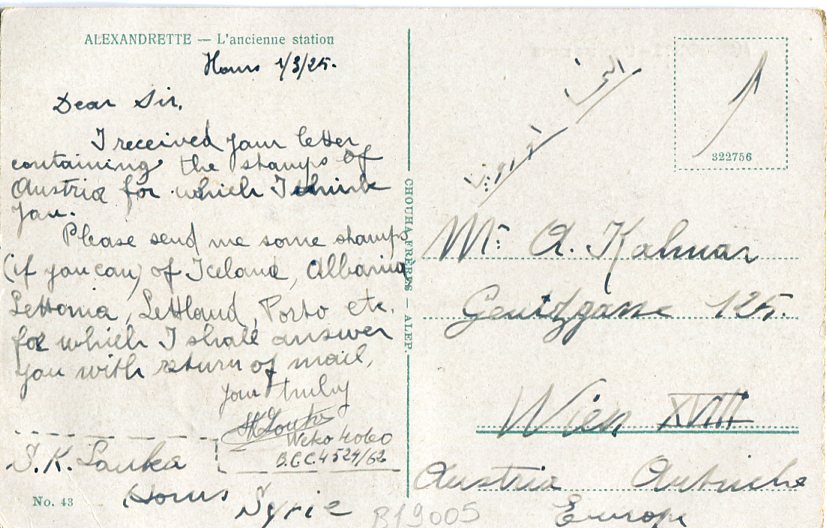 ALEXANDRETTE — L'ancienne station
Homs 1/3/25.
Dear Sir,
I received your letter
containing the stamps of
Austria for which I think
you.
Please send me some stamps
(if you can) of Iceland, Albania
Lettonia, Lettland, Porto etc.
for which I shall answer
you with return of mail,
Your truly
B.C.C. 4524/62
S.K. Louka
Homs
Syrie
No. 43
CHOUHA FRÈRES — ALEP.
322756
Mr. A. Kalmar
Gentzgasse 125.
Wien XVIII
Austria Autriche
Europe
B19005